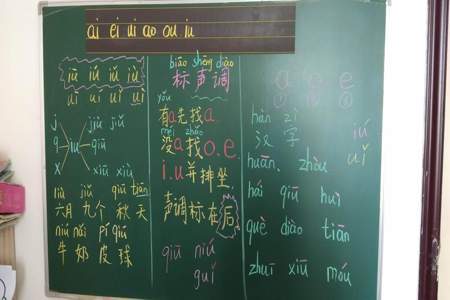 ai ei ui ao ou iu
iū iú iǔ iù
uī uí uǐ uì
j
q
x
iu
jiù jiǔ
qiū
xiū xiù
liù jiǔ qiū tiān
六月 九个 秋天
niú nǎi pí qiú
牛奶 皮球
biāo shēng diào
标声调
yǒu
有a先找a
méi zhǎo
没a找o.e.
i.u并排坐
声调标在后
qiū niú
guǐ
a o e
① ② ③
hàn zì
汉字
iú
uǐ
huān zhōu
hái qiū huì
què diào tiān
zhuī xiū móu